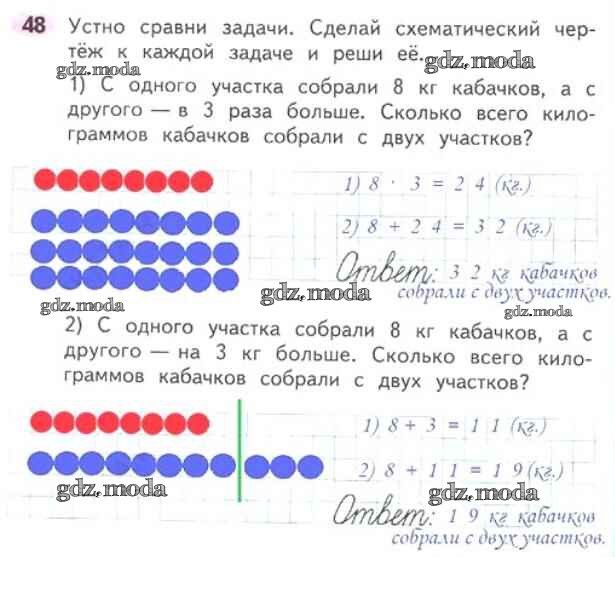 48 Устно сравни задачи. Сделай схематический чер-
тёж к каждой задаче и реши её.
gdz.moda
gdz.moda
1) С одного участка собрали 8 кг кабачков, а с
другого — в 3 раза больше. Сколько всего кило-
граммов кабачков собрали с двух участков?
1) 8 · 3 = 2 4 (кг.)
2) 8 + 2 4 = 3 2 (кг.)
Ответ: 3 2 кг кабачков
собрали с двух участков.
gdz.moda
gdz.moda
gdz.moda
2) С одного участка собрали 8 кг кабачков, а с
другого — на 3 кг больше. Сколько всего кило-
граммов кабачков собрали с двух участков?
1) 8 + 3 = 1 1 (кг.)
2) 8 + 1 1 = 1 9 (кг.)
gdz.moda
gdz.moda
Ответ: 1 9 кг кабачков
собрали с двух участков.